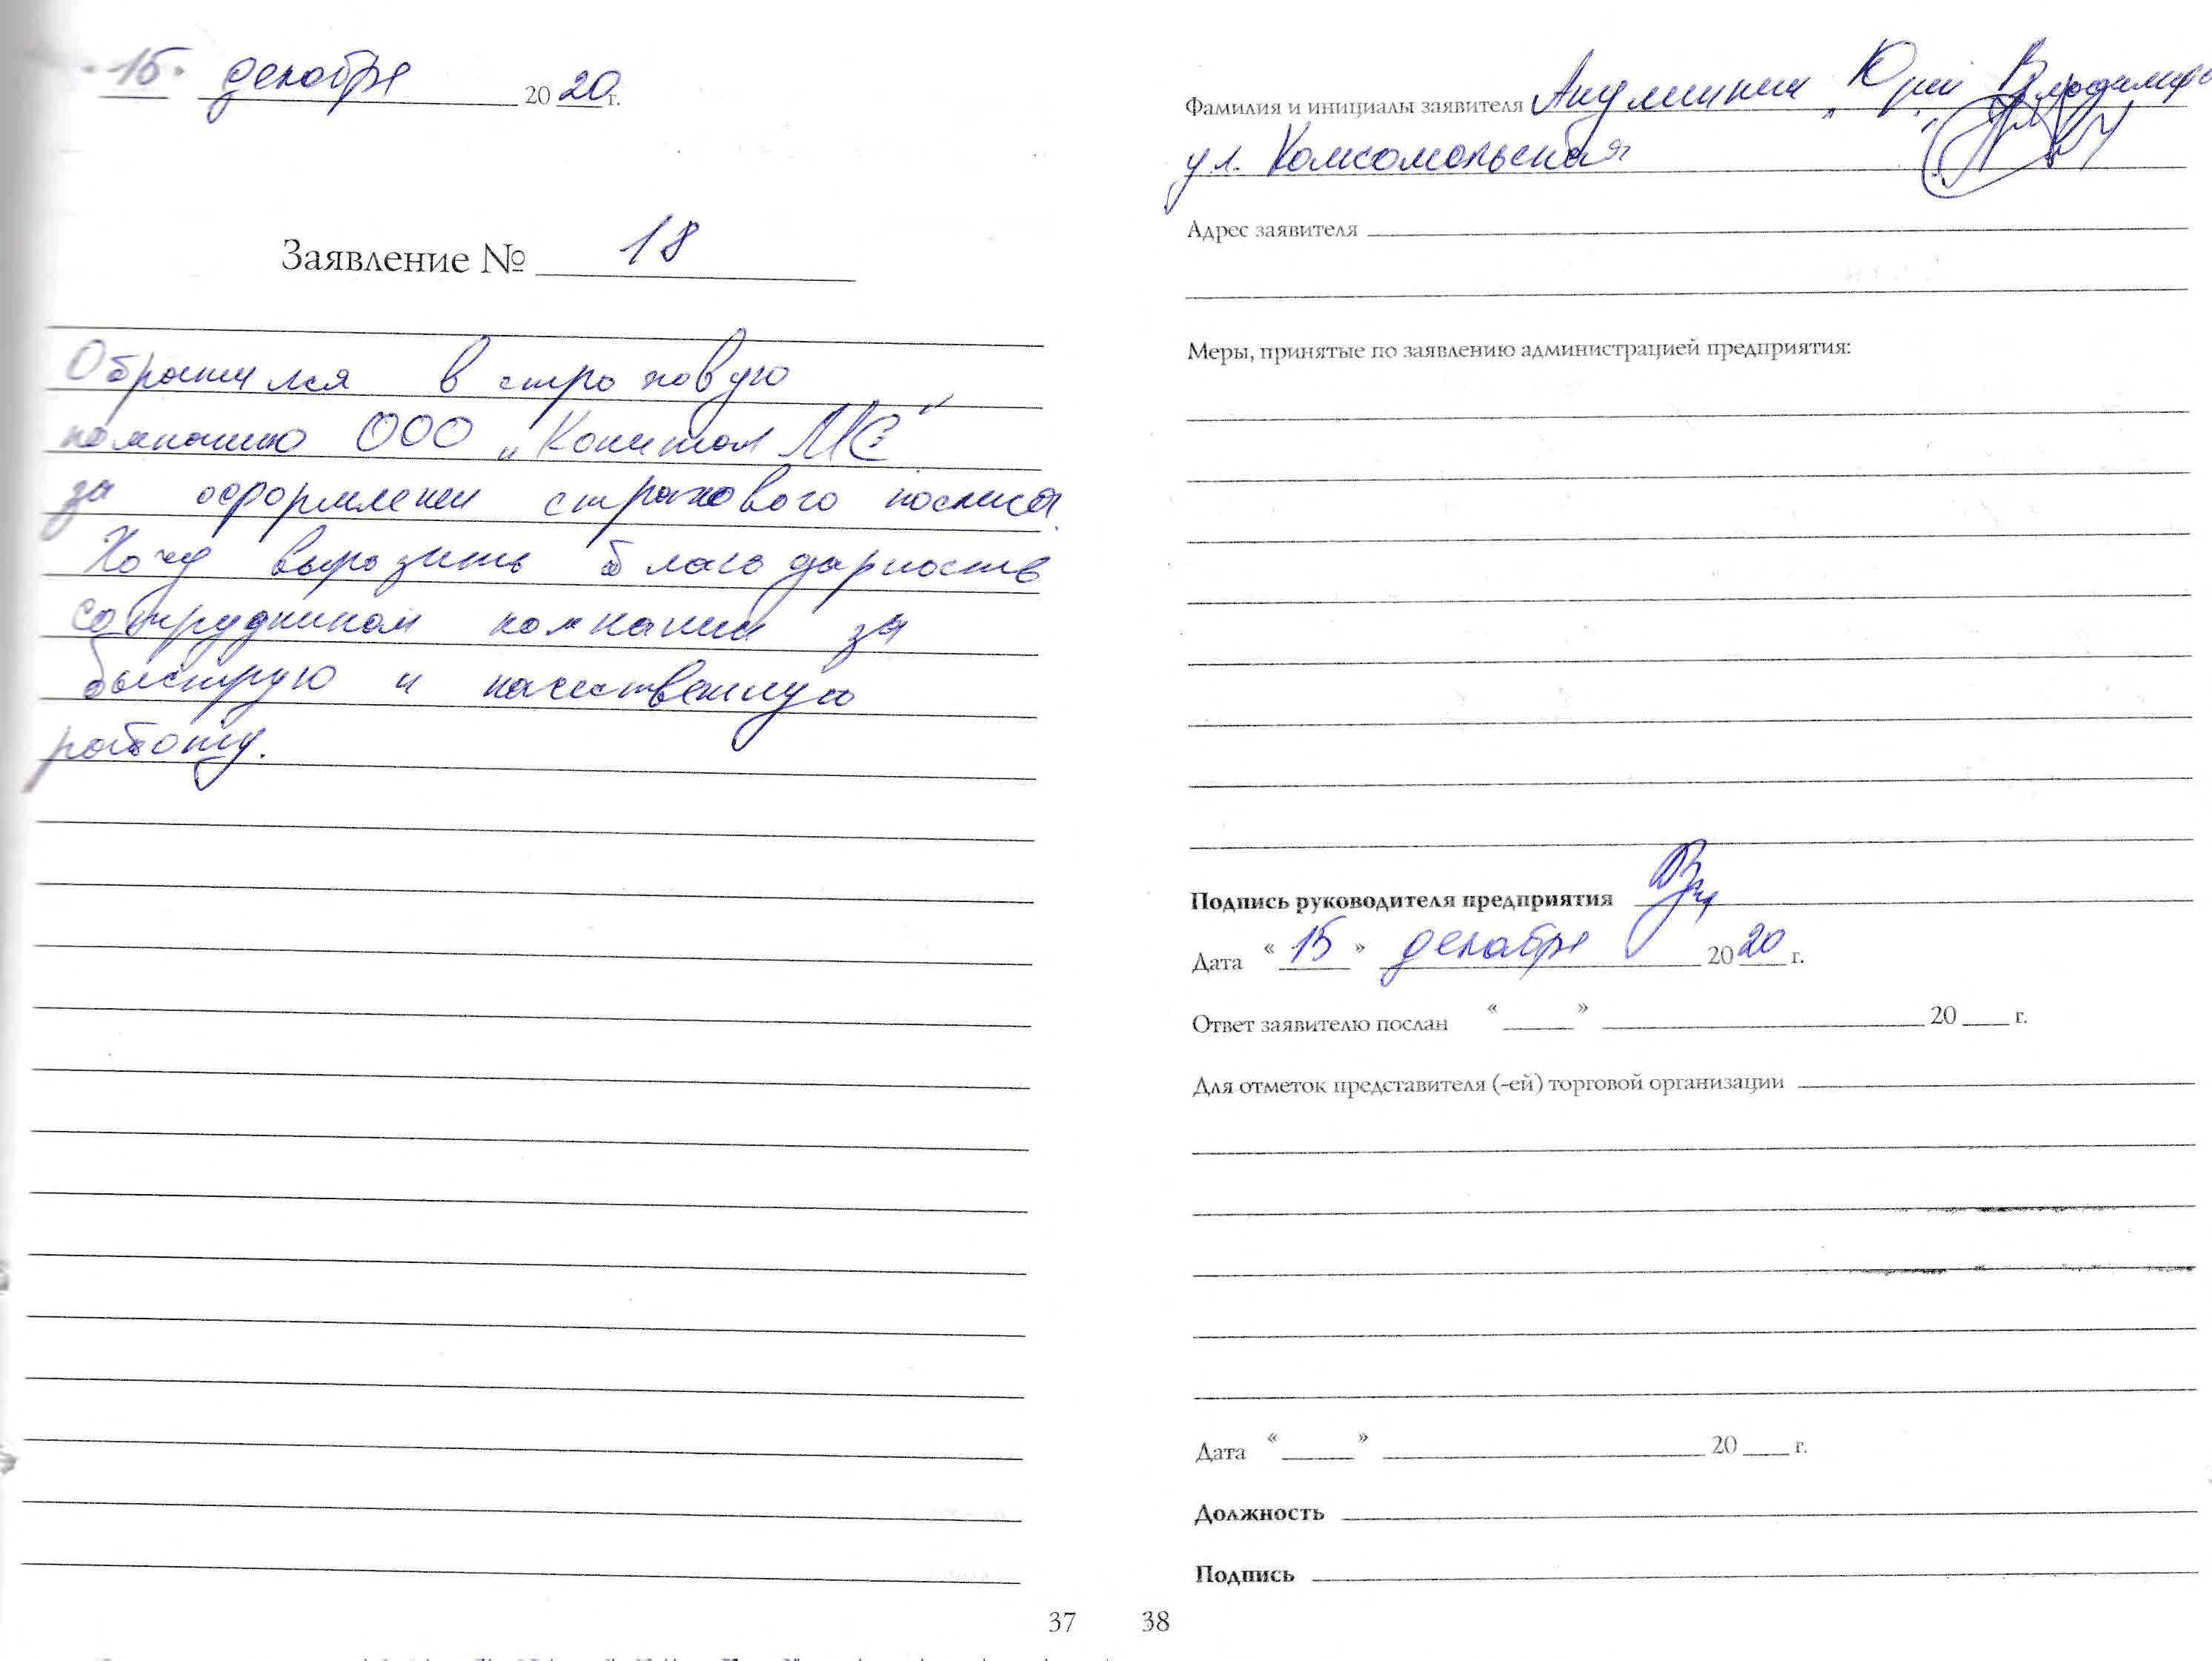 "15" декабря 2020 г.
Заявление № 18
Обратился в страховую
компанию ООО „Капитал МС"
за оформлением страхового полиса.
Хочу выразить благодарность
сотрудникам компании за
быструю и качественную
работу.
37
Фамилия и инициалы заявителя Юрий
ул. Комсомольская
Адрес заявителя
Меры, принятые по заявлению администрацией предприятия:
Подпись руководителя предприятия
Дата « 15 » декабря 2020 г.
Ответ заявителю послан « » 20 г.
Для отметок представителя (-ей) торговой организации
Дата « » 20 г.
Должность
Подпись
38